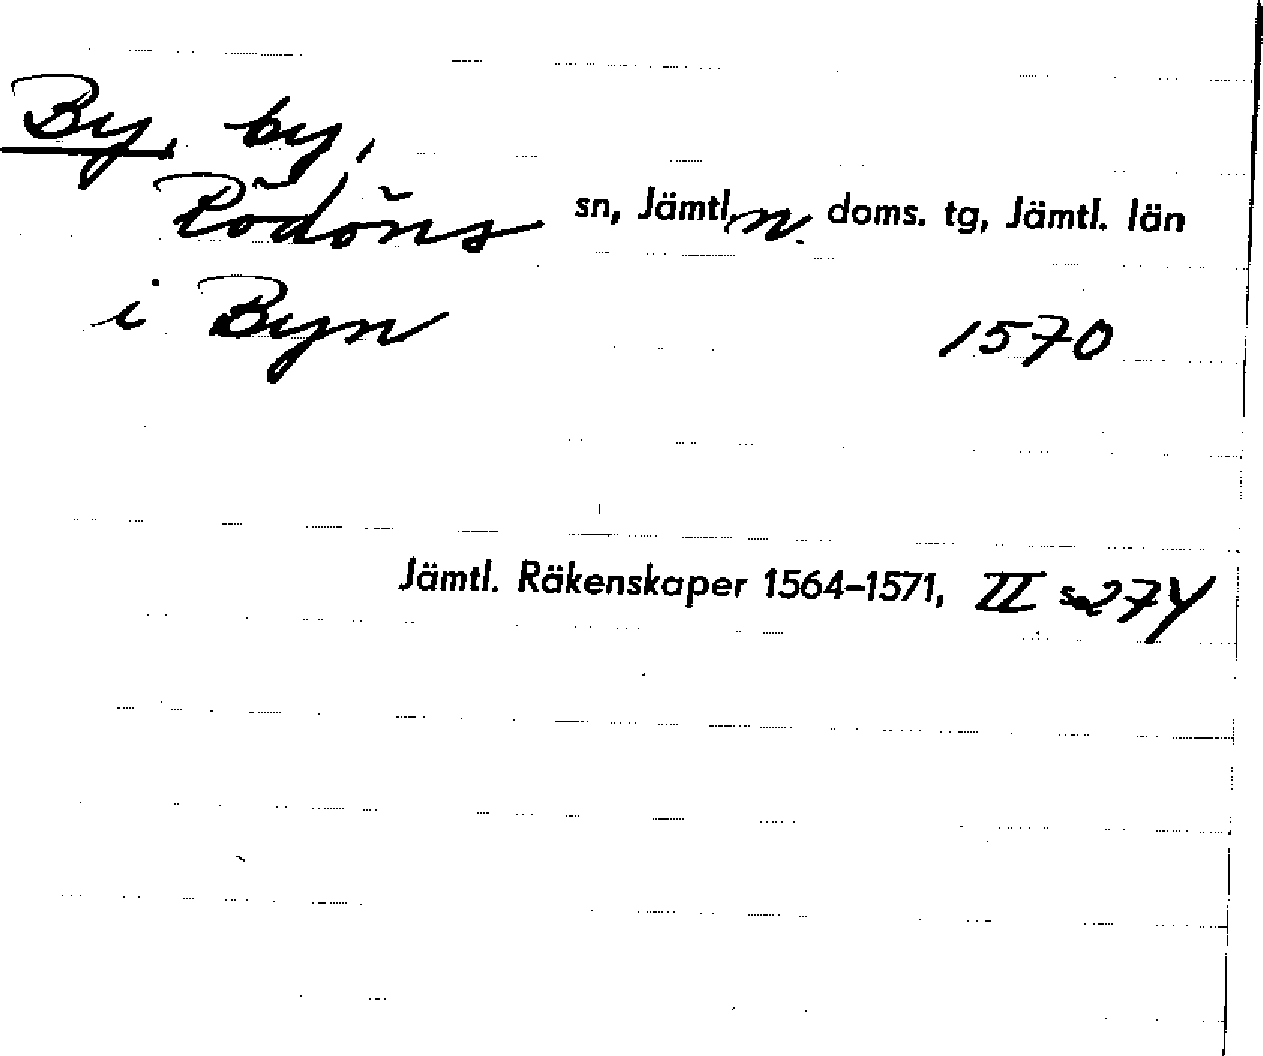 By, by,
Rödöns sn, Jämtl, n. doms. tg, Jämtl. län
i Byn 1570
Jämtl. Räkenskaper 1564–1571, II s. 274